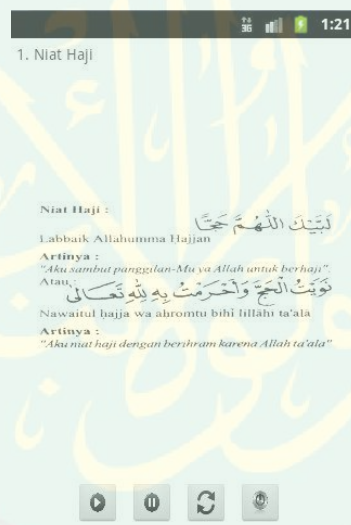 3G 1:21
1. Niat Haji
Niat Haji :
لَبَّيْكَ اللّٰهُمَّ حَجًّا
Labbaik Allahumma Hajjan
Artinya :
"Aku sambut panggilan-Mu ya Allah untuk berhaji".
Atau :
نَوَيْتُ الْحَجَّ وَأَحْرَمْتُ بِهِ لِلّٰهِ تَعَالَى
Nawaitul hajja wa ahromtu bihi lillâhi ta'alâ
Artinya :
"Aku niat haji dengan berihram karena Allah ta'ala"